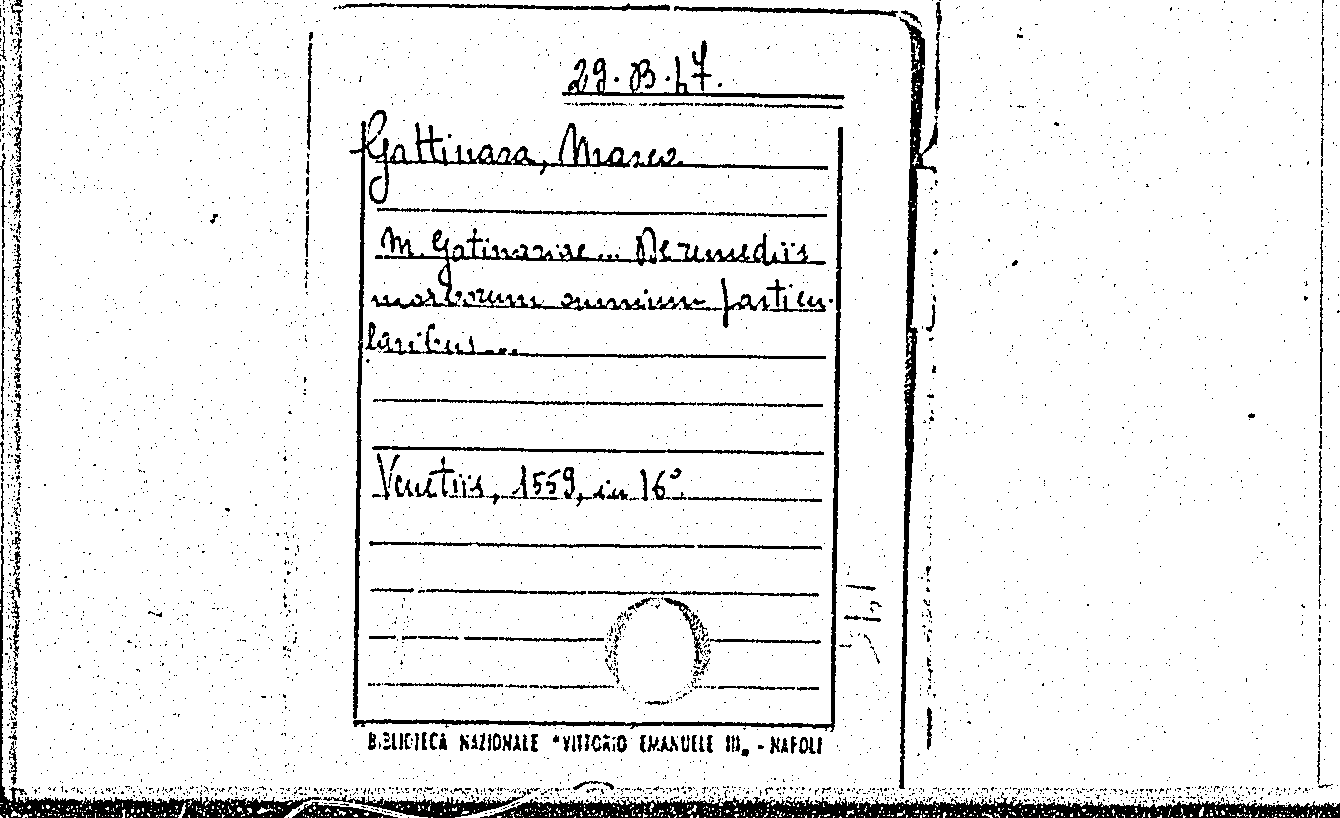 29. B. 47.
Gattinara, Marco
M. Gatinariae... De remediis
morborum omnium particu-
laribus...
Venetiis, 1559, in 16°.
BIBLIOTECA NAZIONALE "VITTORIO EMANUELE III„ - NAPOLI